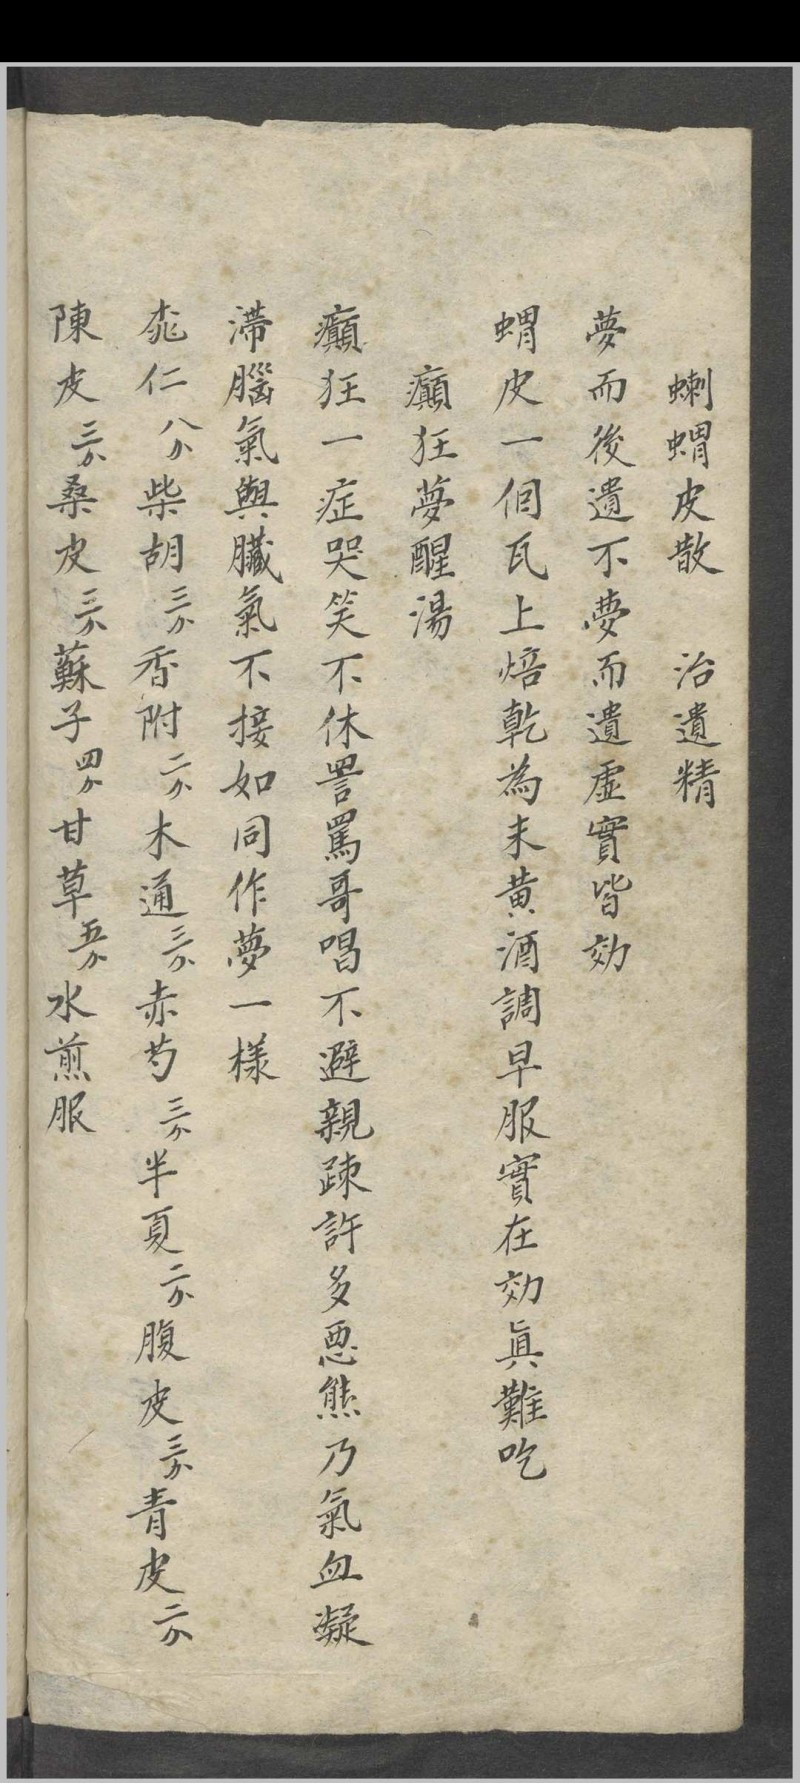 蝲蝟皮散　治遺精
夢而後遺不夢而遺虛實皆効
蝟皮一個瓦上焙乾為末黄酒調早服實在効眞難吃
癲狂夢醒湯
癲狂一症哭笑不休詈罵哥唱不避親疎許多惡熊乃氣血凝
滯腦氣與臟氣不接如同作夢一樣
桃仁八分柴胡三分香附二分木通三分赤芍三分半夏二分腹皮三分青皮二分
陳皮三分桑皮三分蘇子四分甘草五分水煎服